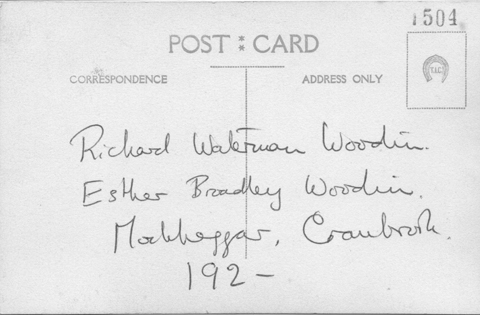 1504
POST CARD
CORRESPONDENCE
ADDRESS ONLY
Richard Waterman Woodin.
Esther Bradley Woodin.
Mockbeggar, Cranbrook.
192-